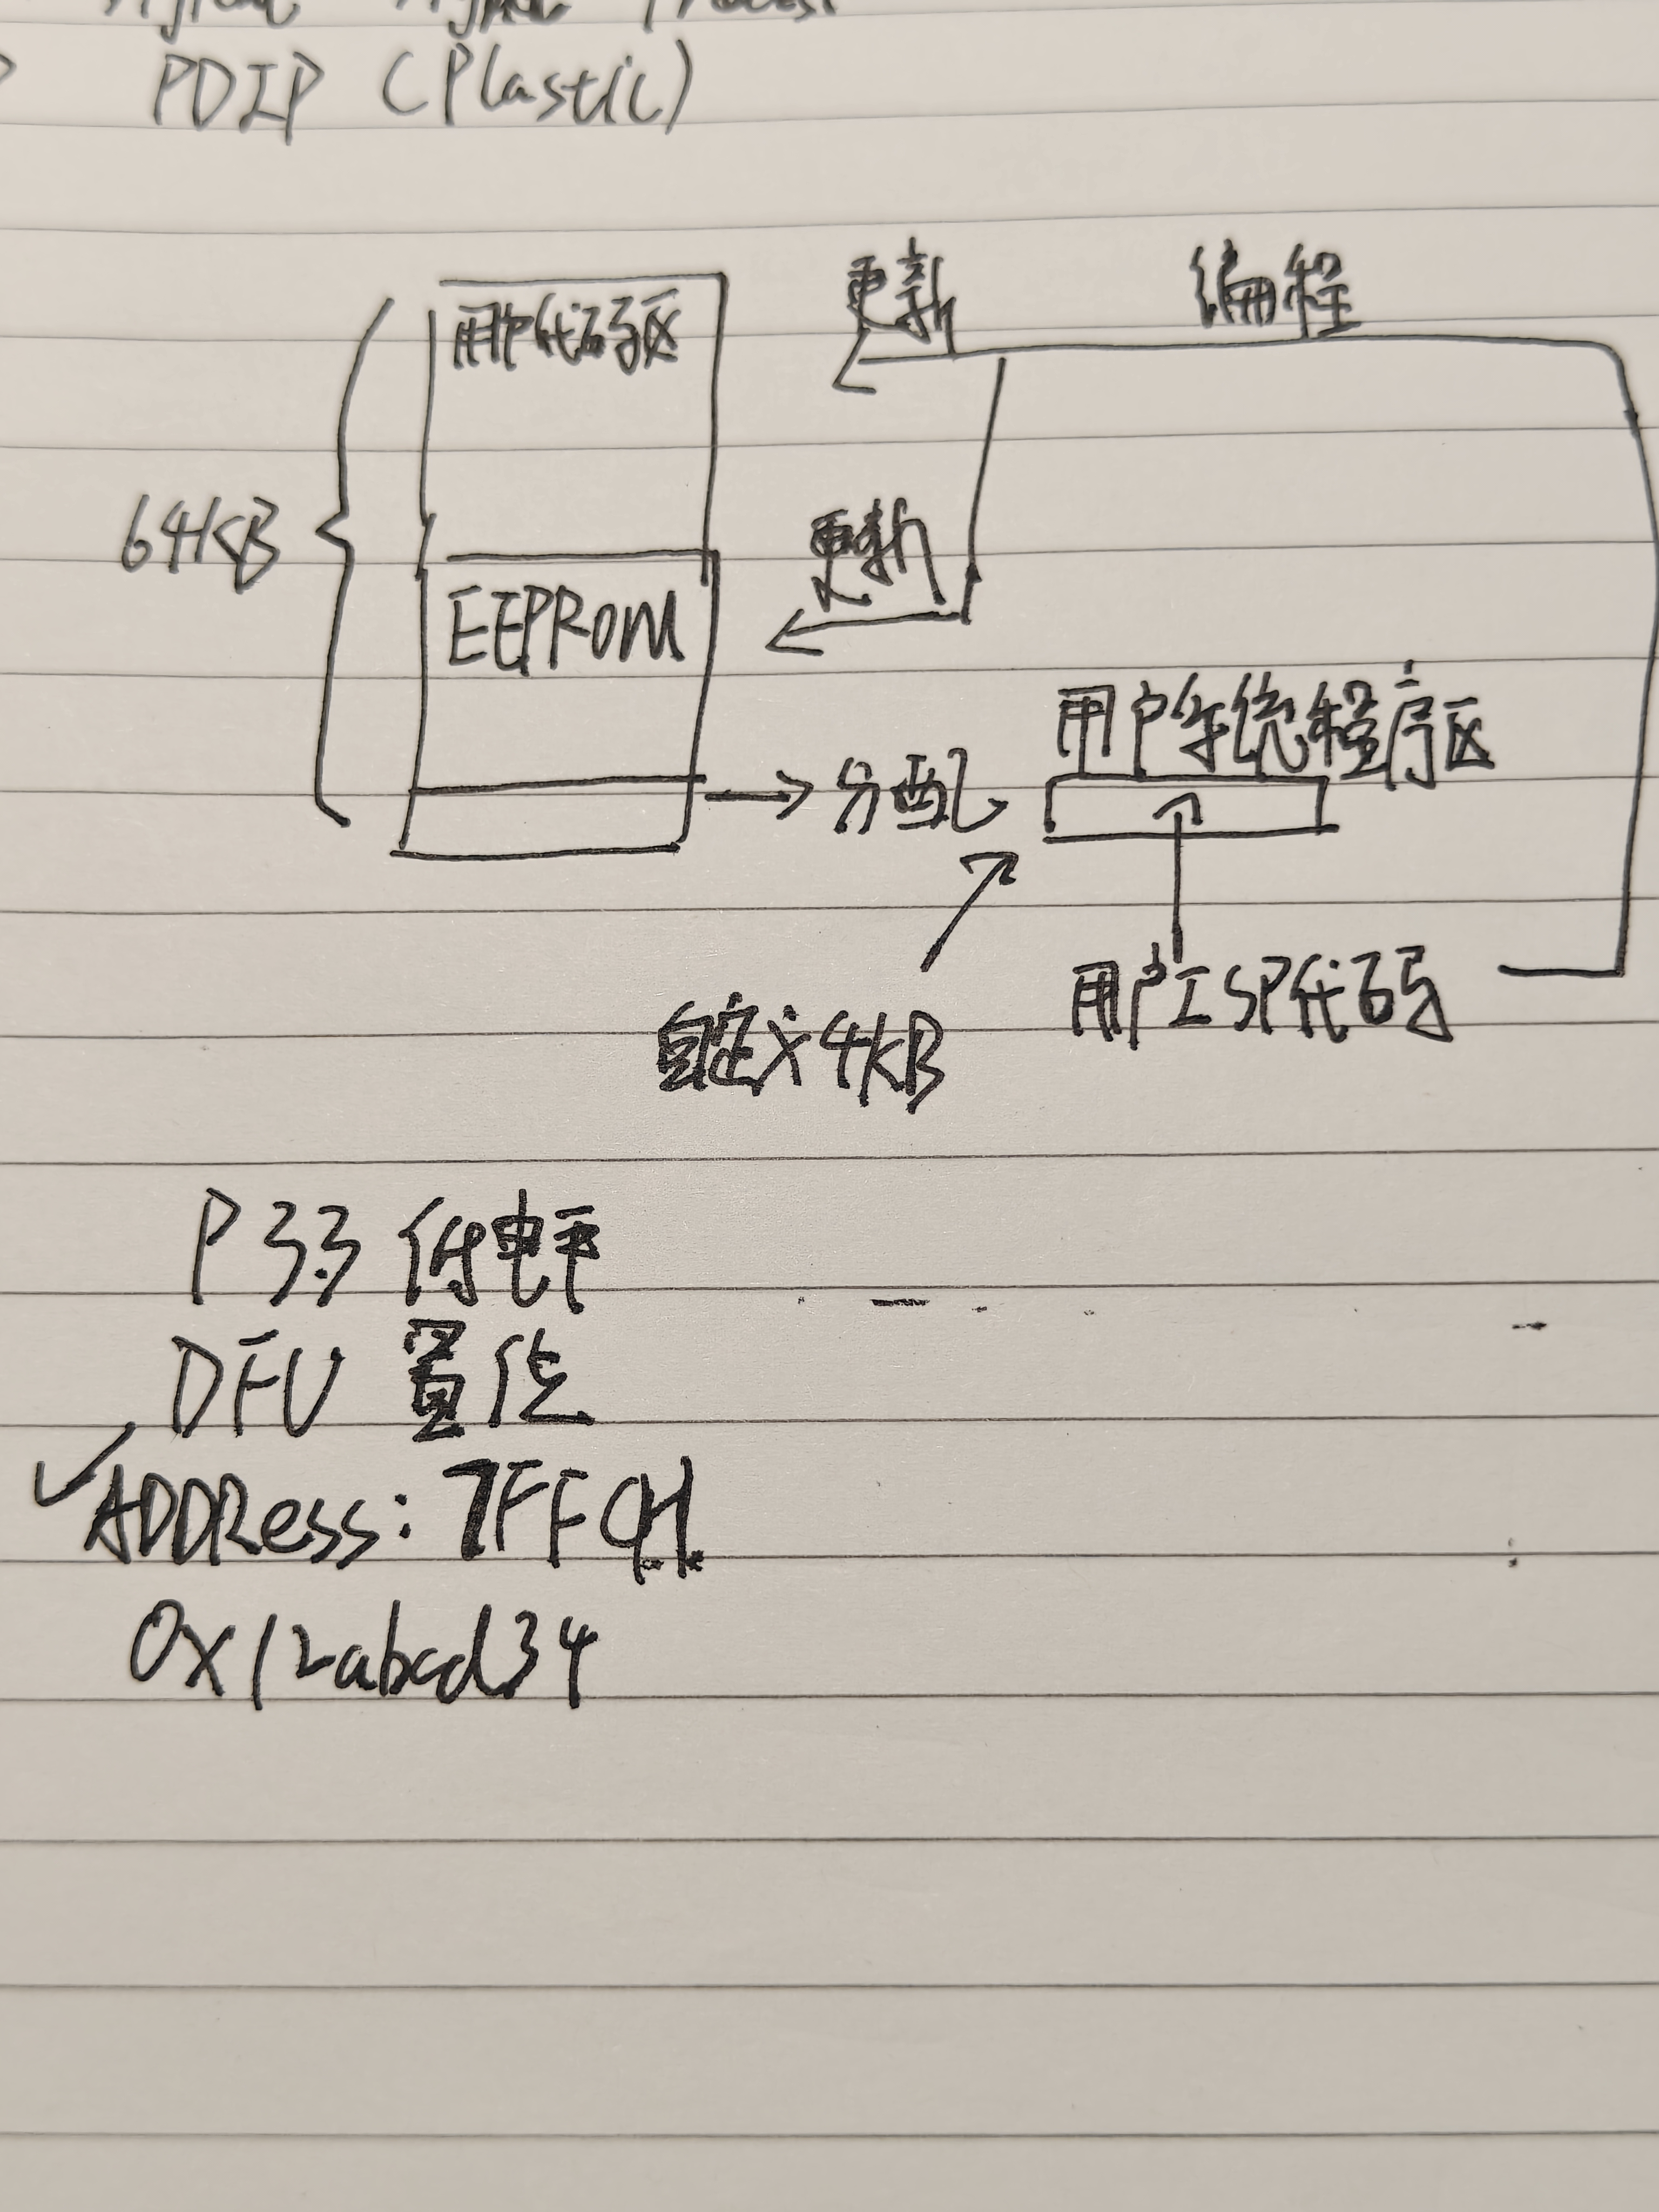 PDIP (Plastic)
更新 编程
用户代码区
64KB
更新
EEPROM
用户系统程序区
→分配
用户ISP代码
自定义4KB
P3.3 低电平
DFU 置位
✓ADDRess: 7FFCH
0x12abcd34